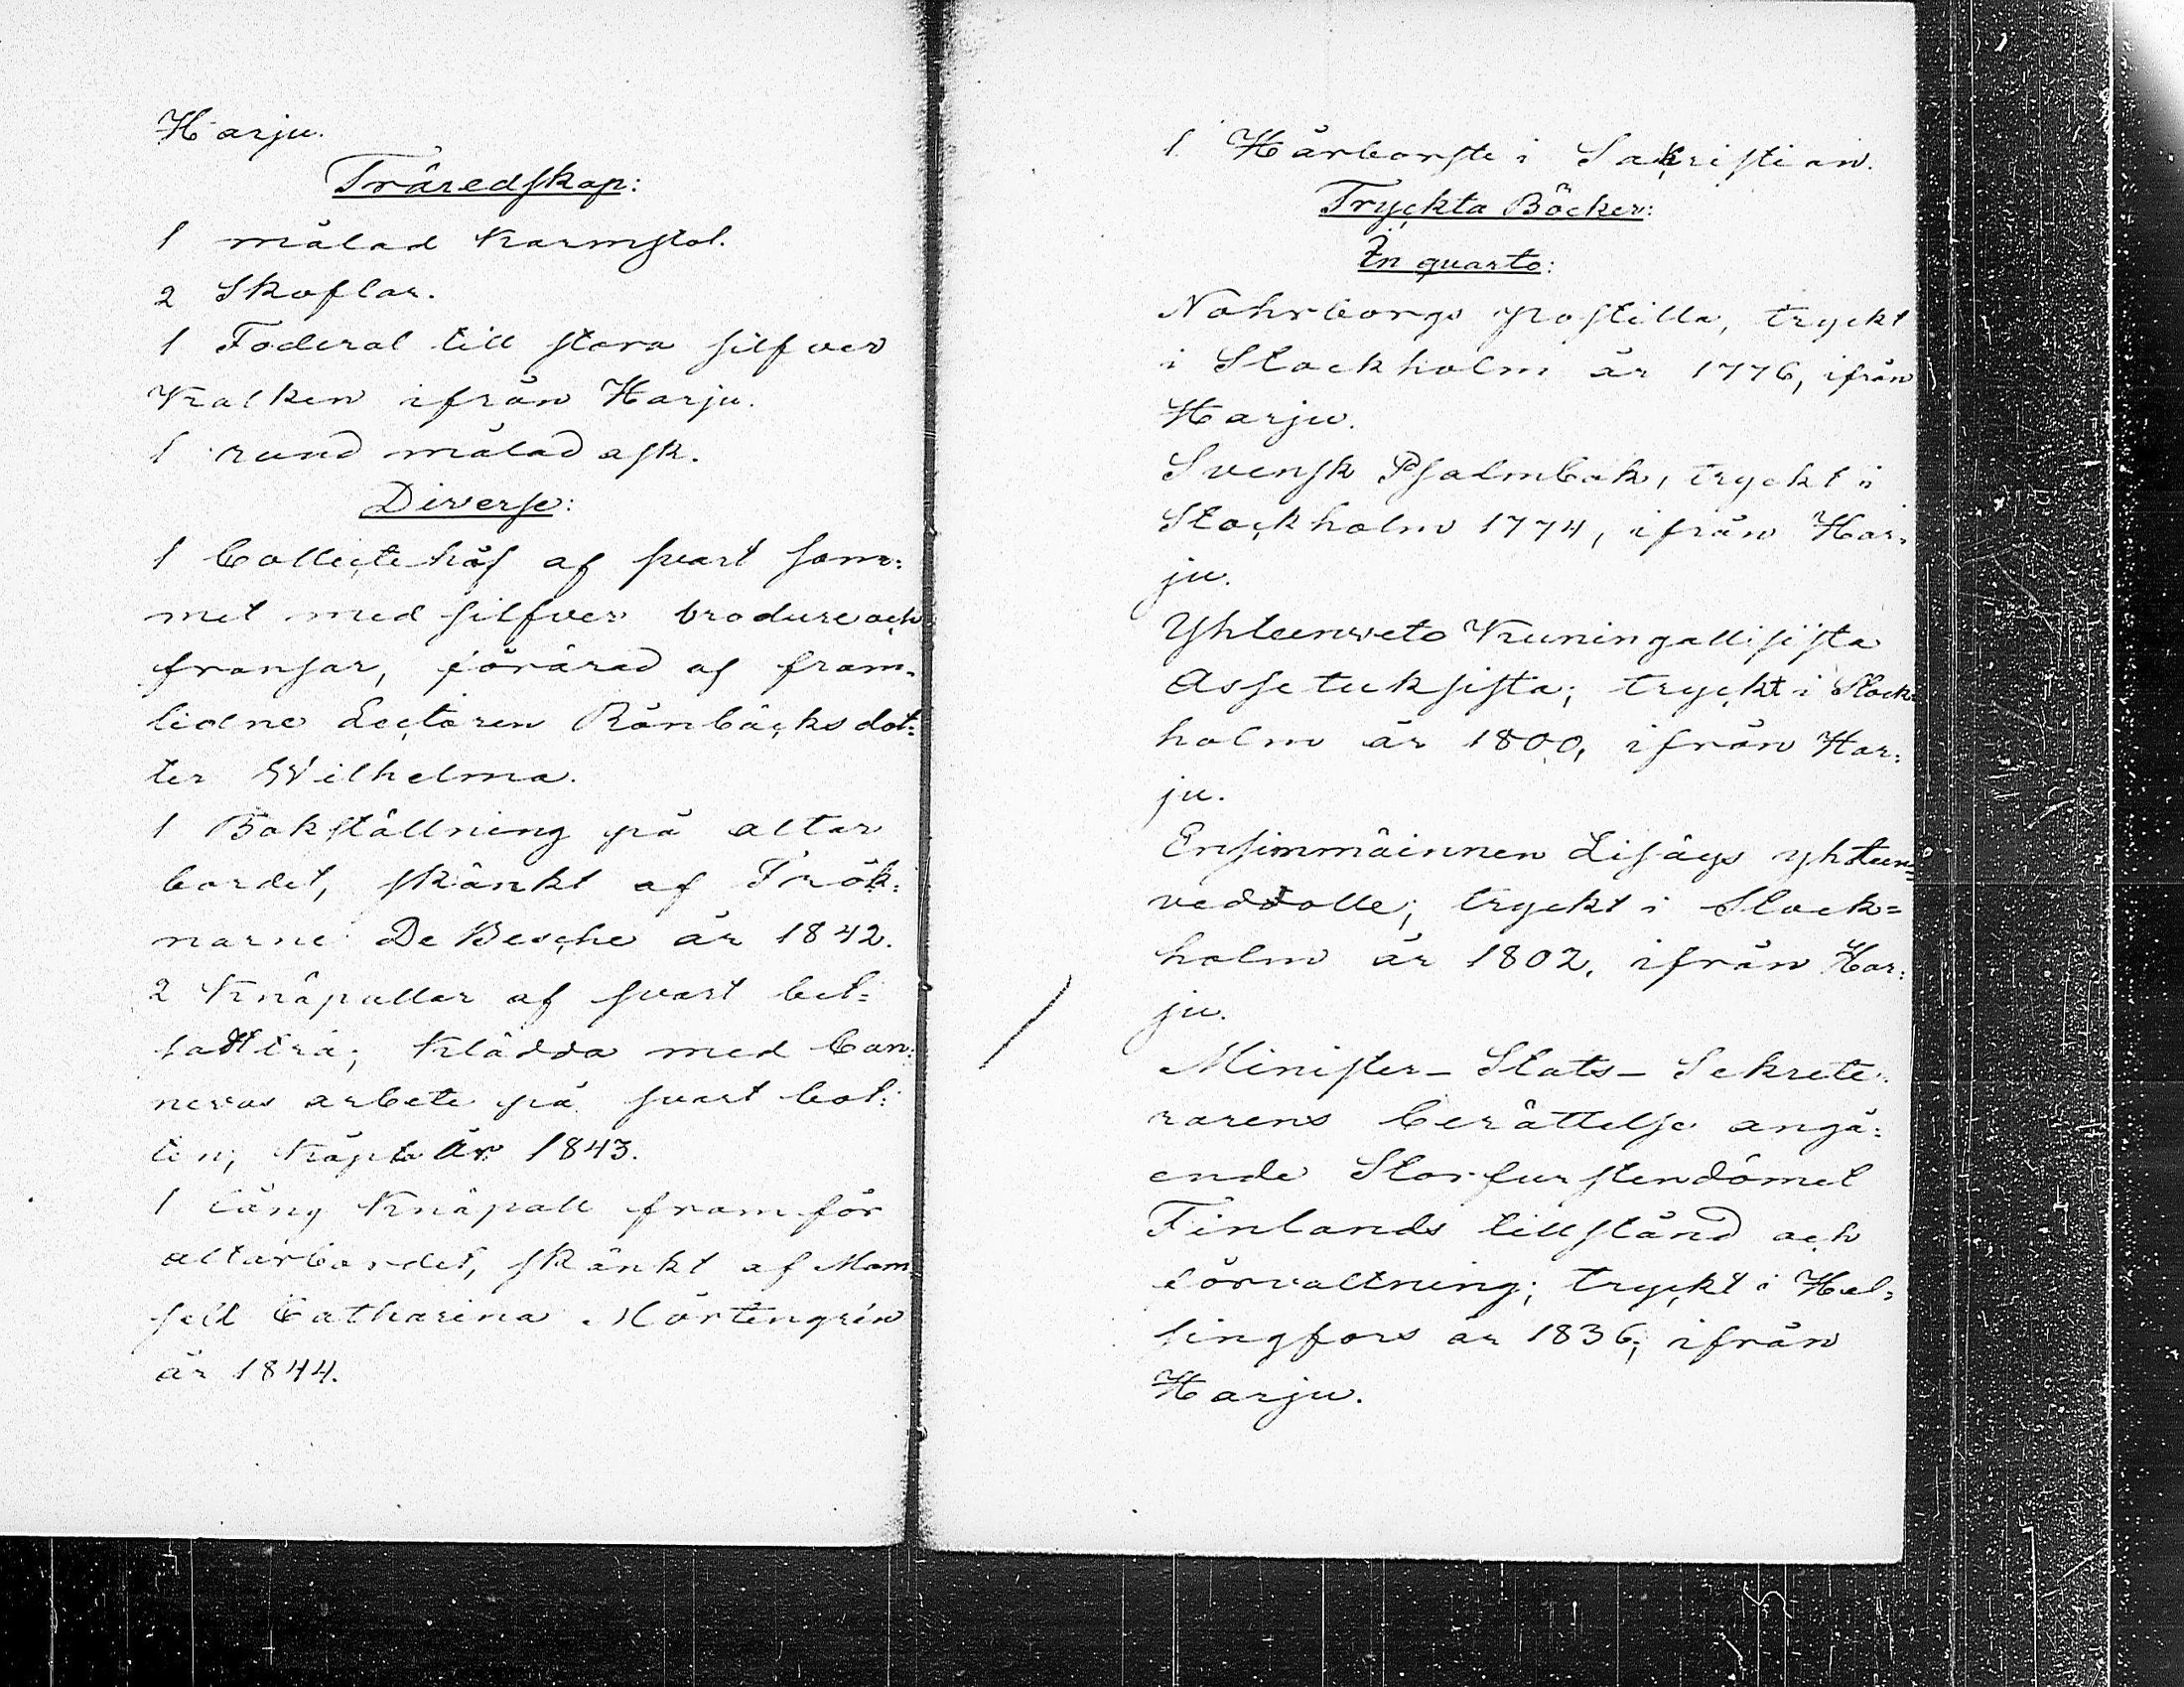 Harju.
Träredskap:
1 målad Karmstol.
2 Skoflar.
1 Foderal till stora silfver
Kalken ifrån Harju.
1 rund målad ask.
Diverse:
1 Collecte håf af svart sam=
met med silfver brodure och
fransar, förärad af fram=
lidne Lectoren Rönbäcks dot=
ter Wilhelma.
1 Bokställning på altar
bordet, skänkt af Frök=
narne De Besche år 1842.
2 Knäpallar af svart bet=
sadt trä; klädda med Can=
nevas arbete på svart bot=
ten; köpta År 1843.
1 lång Knäpall framför
altarbordet, skänkt af Mam=
sell Catharina Mårtengrén
år 1844.
1 Hårborste i Sakristian.
Tryckta Böcker:
In quarto:
Nohrborgs postilla, tryckt
i Stockholm år 1776, ifrån
Harju.
Svensk Psalmbok, tryckt i
Stockholm 1774, ifrån Har=
ju.
Yhteenveto Kuningallisista
Assetuksista; tryckt i Stock=
holm år 1800, ifrån Har=
ju.
Ensimmäinnen Lisäys yhteen=
vedolle; tryckt i Stock=
holm år 1802, ifrån Har=
ju.
Minister-Stats-Sekrete=
rarens berättelse angå=
ende Storfurstendömet
Finlands tillstånd och
förvaltning; tryckt i Hel=
singfors år 1836; ifrån
Harju.